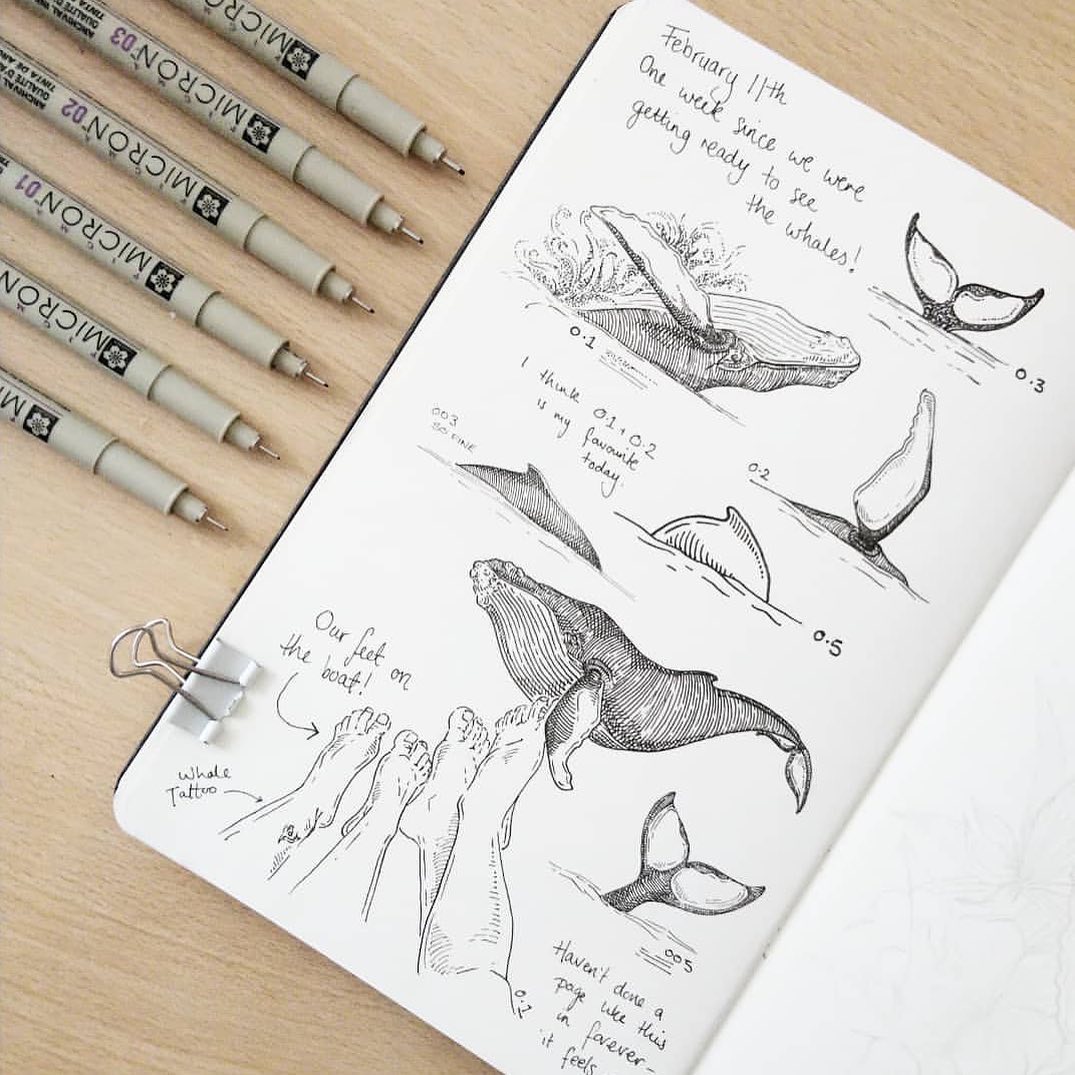 MICRON
MICRON 03
MICRON 02
MICRON 01
MICRON
MI
February 11th
One week since we were
getting ready to see
the whales!
0.3
0.1
I think 0.1 + 0.2
is my favourite
today.
003
SO FINE
0.2
0.5
Our feet on
the boat!
Whale
Tattoo
0.2
005
Haven't done a
page like this
in forever-
it feels